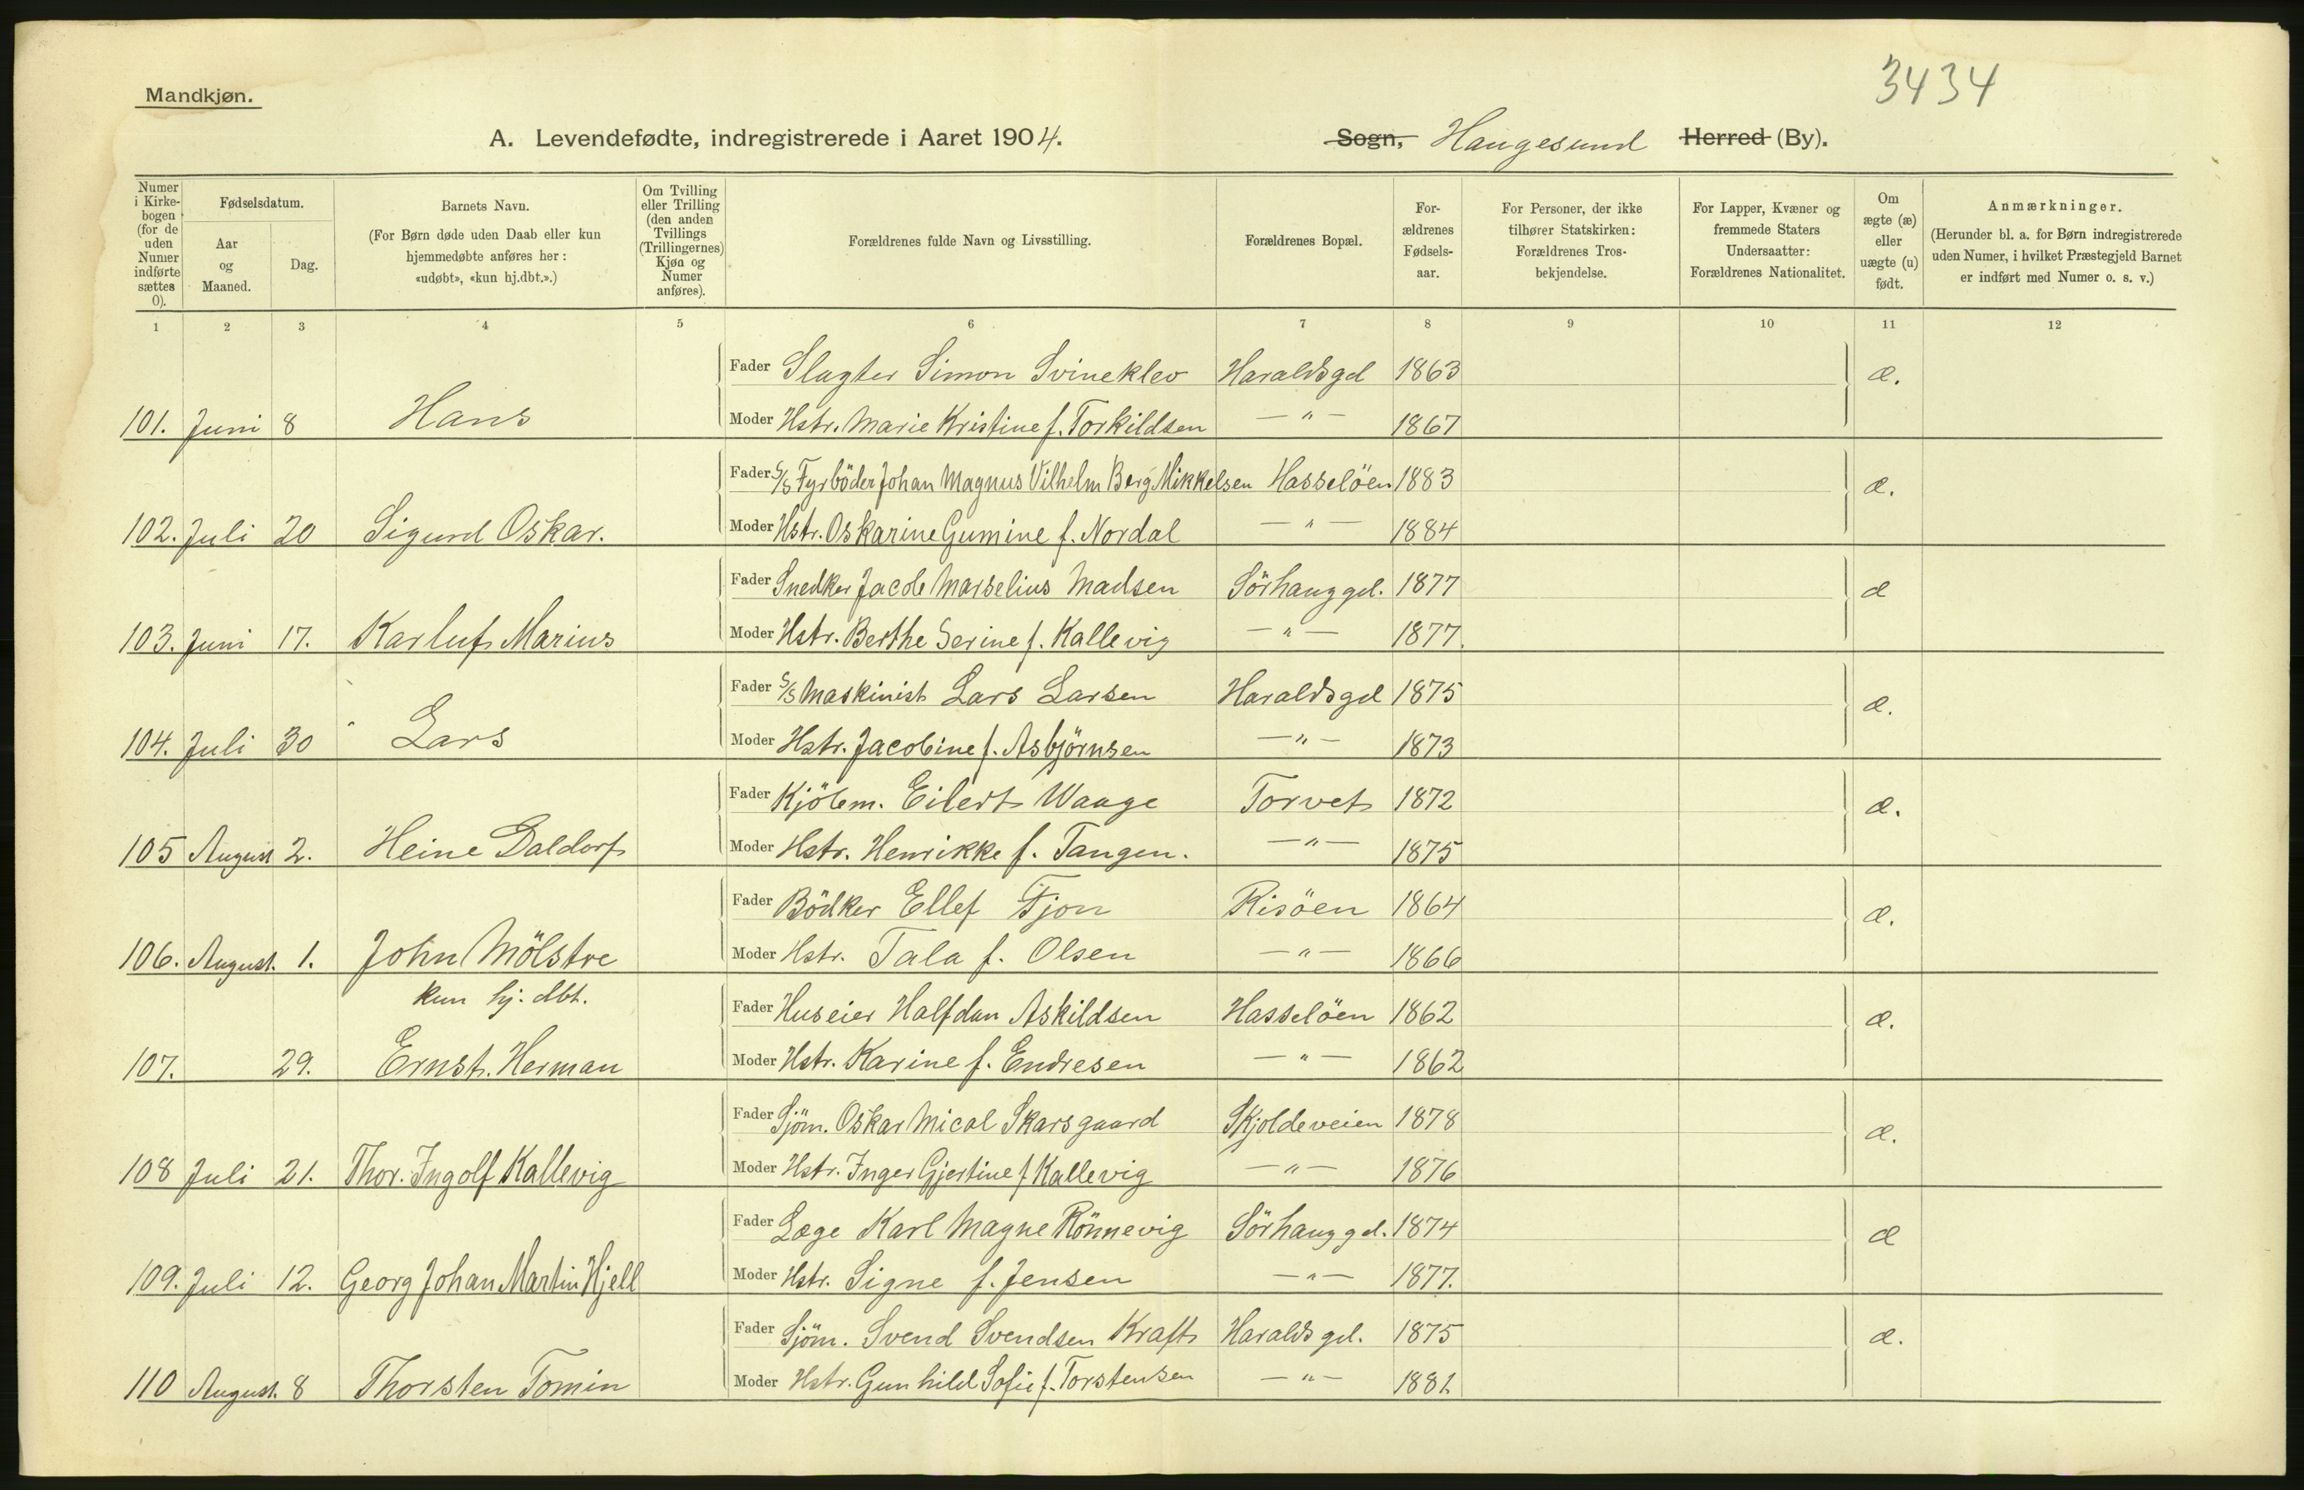 3434
Mandkjøn.
A. Levendefødte, indregistrerede i Aaret 1904. Sogn, Haugesund Herred (By).
Numer i Kirkebogen (for de uden Numer indførte sættes 0).
Fødselsdatum.
Aar og Maaned.
Dag.
Barnets Navn.
(For Børn døde uden Daab eller kun hjemmedøbte anføres her: «udøbt», «kun hj.dbt.».)
Om Tvilling eller Trilling (den anden Tvillings (Trillingernes) Kjøn og Numer anføres).
Forældrenes fulde Navn og Livsstilling.
Forældrenes Bopæl.
Forældrenes Fødselsaar.
For Personer, der ikke tilhører Statskirken: Forældrenes Trosbekjendelse.
For Lapper, Kvæner og fremmede Staters Undersaatter: Forældrenes Nationalitet.
Om ægte (æ) eller uægte (u) født.
Anmærkninger.
(Herunder bl. a. for Børn indregistrerede uden Numer, i hvilket Præstegjeld Barnet er indført med Numer o. s. v.)
1 2 3 4 5 6 7 8 9 10 11 12
Fader Slagter Simon Svineklev Haraldsgd 1863 æ.
101. Juni 8 Hans Moder Hstr. Marie Kristine f. Torkildsen —"— 1867
Fader S/S Fyrböder Johan Magnus Vilhelm Berg Mikkelsen Hasselöen 1883 æ.
102. Juli 20 Sigurd Oskar. Moder Hstr. Oskarine Gumine f. Nordal —"— 1884
Fader Snedker Jacob Marselius Madsen Sörhauggd. 1877 æ
103. Juni 17. Karluf Marius Moder Hstr. Berthe Serine f. Kallevig —"— 1877.
Fader S/S Maskinist Lars Larsen Haraldsgd 1875 æ.
104. Juli 30 Lars Moder Hstr. Jacobine f. Asbjörnsen —"— 1873
Fader Kjöbm. Eilert Waage Torvet 1872 æ.
105 August 2. Heine Daldorf Moder Hstr. Henrikke f. Tangen. —"— 1875
Fader Bödker Ellef Fjon Risöen 1864 æ.
106. August. 1. John Mölstre Moder Hstr. Tala f. Olsen —"— 1866
kun hj. dbt. Fader Huseier Halfdan Askildsen Hasselöen 1862 æ.
107. 29. Ernst. Herman Moder Hstr. Karine f. Endresen —"— 1862
Fader Sjöm. Oskar Mical Skarsgaard Skjoldeveien 1878 æ.
108 Juli 21. Thor. Ingolf Kallevig Moder Hstr. Inger Gjertine f Kallevig —"— 1876
Fader Læge Karl Magne Rönnevig Sörhauggd. 1874 æ
109. Juli 12. Georg Johan Martin Kjell Moder Hstr. Signe f. Jensen —"— 1877.
Fader Sjöm. Svend Svendsen Kraft Haraldsgd. 1875 æ.
110 August. 8 Thorsten Tomin Moder Hstr. Gunhild Sofie f. Torstensen —"— 1881